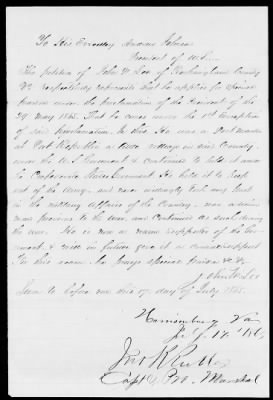 To His Excellency Andrew Johnson
President of U.S.
The petition of John W. of Rockingham County
Va respectfully represents that he applies for special
pardon under the proclamation of the President of the
29 May 1865. That he comes under the 1st exception
of said proclamation, to this. He was a Post Master
at Port Republic a little village in said County,
under the U.S. Government & continued to hold it under
the Confederate States Government. He held it to keep
out of the army, and never willingly took any part
in the military affairs of the Country, was a Union
man previous to the war, and continued as such during
the war. He is now a supporter of the Gov-
ernment, & will in future give it a support
For this reason he prays special pardon &c.
John W.
Sworn to before me this 17 day of July 1865.
Harrisonburg Va
July 17th 1865
Jno R
Capt & Pro. Marshal